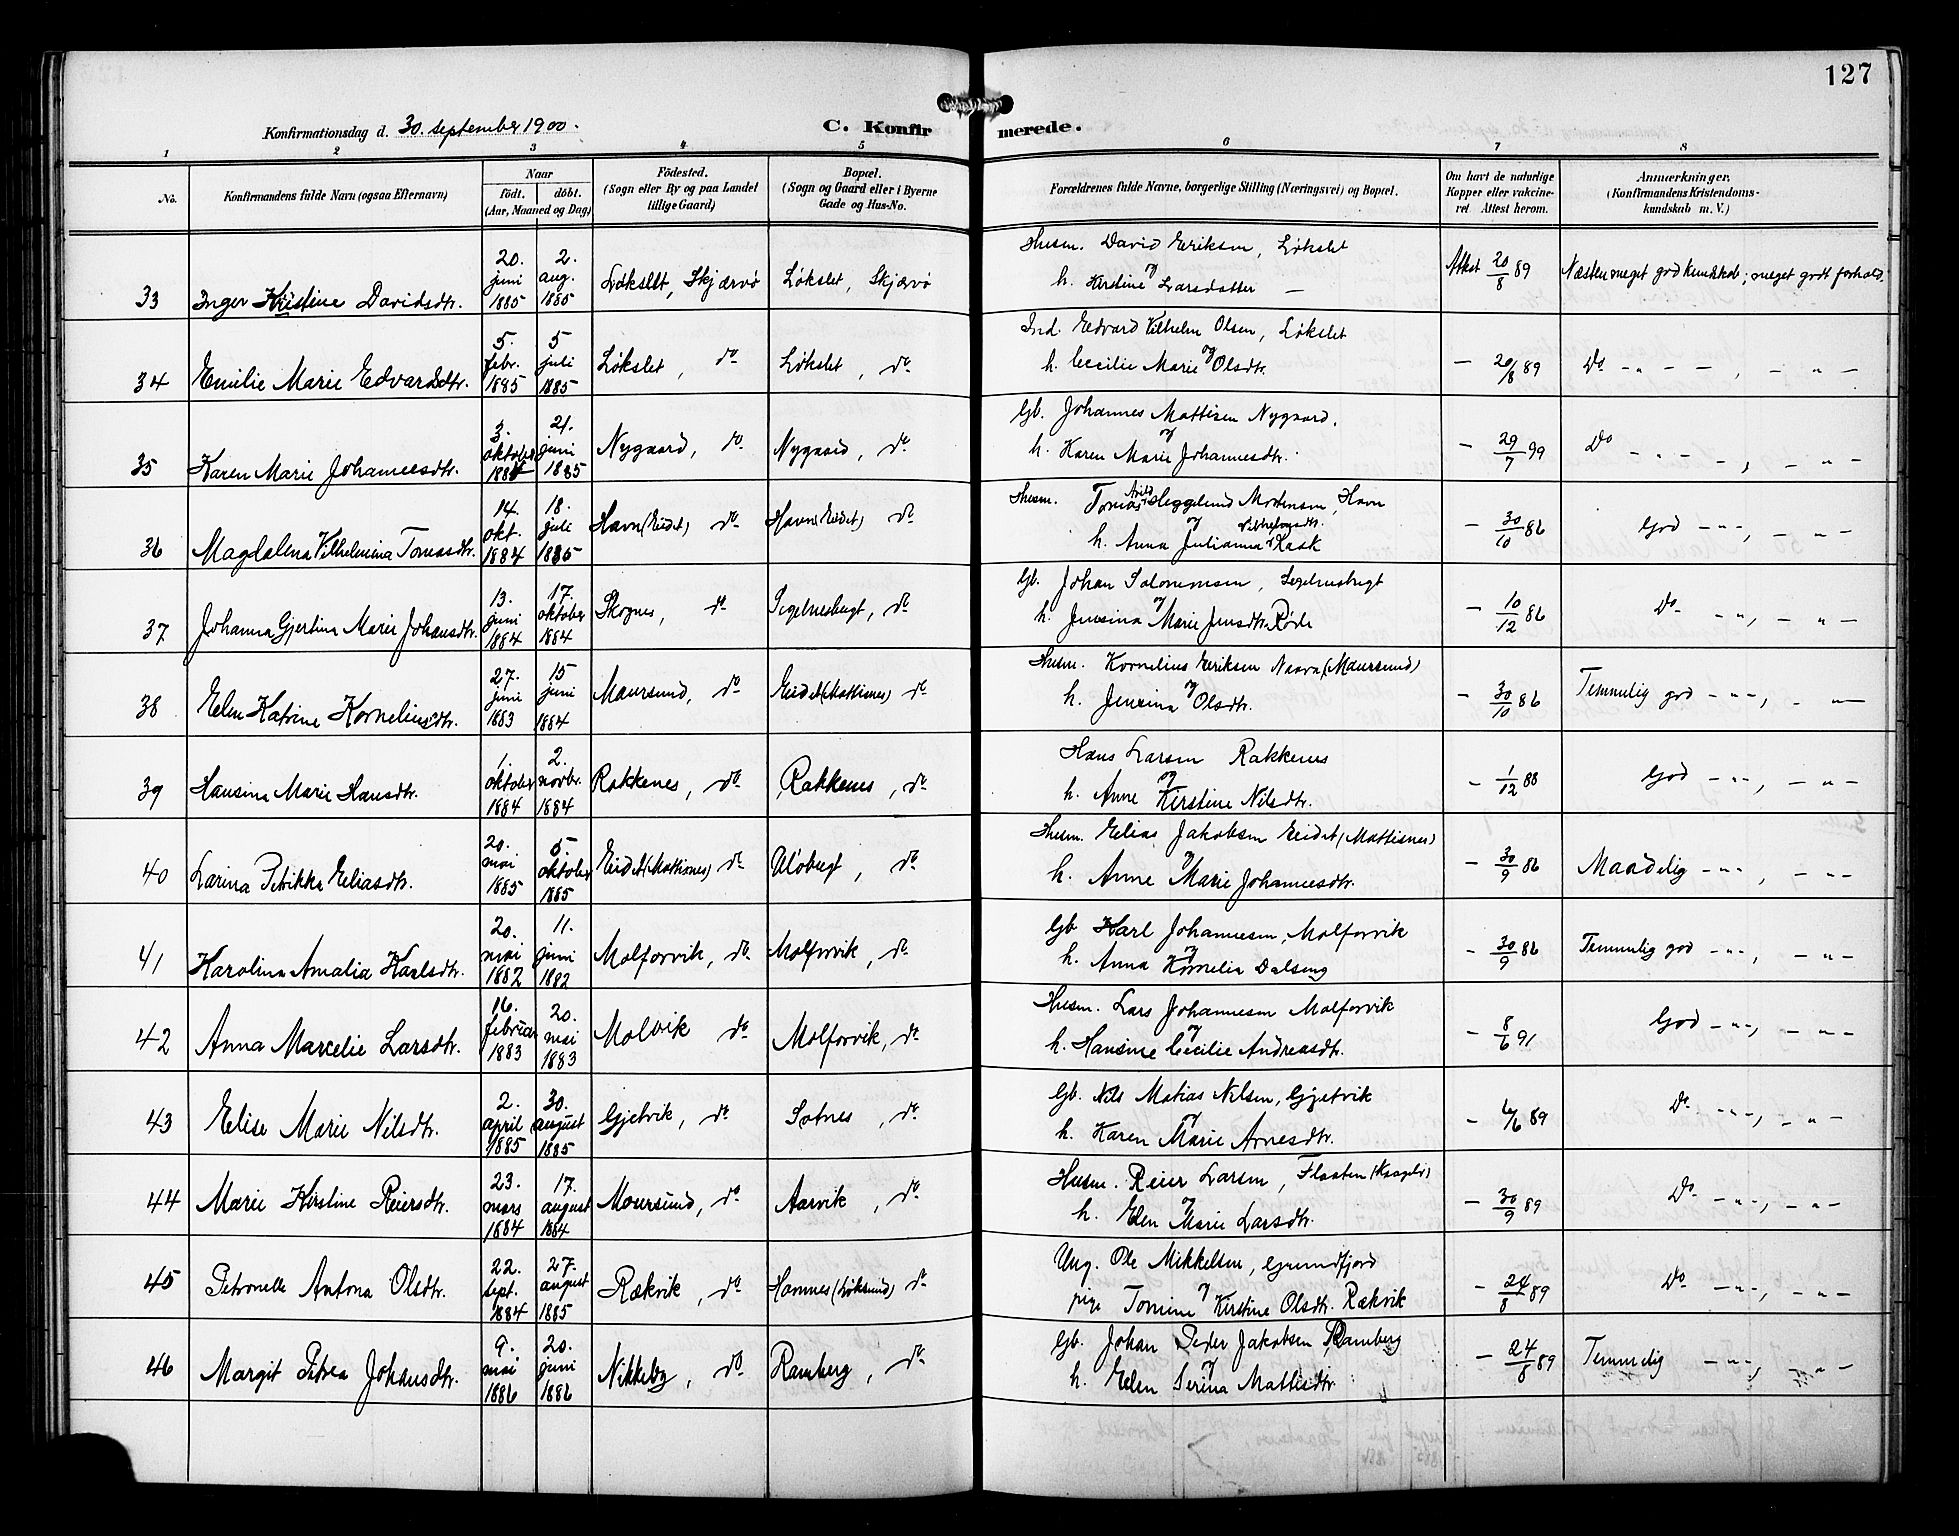 127
Konfirmationsdag d. 30. september 1900.
C. Konfirmerede.
1 2 3 4 5 6 7 8
No.
Konfirmandens fulde Navn (ogsaa Efternavn)
Naar
født. døbt.
(Aar, Maaned og Dag)
Fødested.
(Sogn eller By og paa Landet
tillige Gaard)
Bopæl.
(Sogn og Gaard eller i Byerne
Gade og Hus-No.
Forældrenes fulde Navne, borgerlige Stilling (Næringsvei) og Bopæl.
Om havt de naturlige
Kopper eller vakcine-
ret. Attest herom.
Anmærkninger.
(Konfirmandens Kristendoms-
kundskab m. V.)
33 Inger Kristine Davidsdtr. 20. juni 1885 2. aug. 1885 Løkslet, Skjærvø Løkslet, Skjærvø
Husm. David Eriksen, Løkslet
og
h. Kirstine Larsdatter —
Attest 20/8 89 Næsten meget god kundskab; meget godt forhold.
34 Emilie Marie Edvardsdtr. 5. febr. 1885 5 juli 1885 Løkslet, do Løkslet, do
Ind. Edvard Vilhelm Olsen, Løkslet
og
h. Cecilie Marie Olsdtr.
— 20/8 89 Do — " — — , — " —
35 Karen Marie Johannesdtr. 3. oktober 1884 21. juni 1885 Nygaard, do Nygaard, do
Gb. Johannes Mattisen Nygaard.
og
h. Karen Marie Johannesdtr.
— 29/7 99 Do — " — — , — " —
36 Magdalena Vilhelmina Tomasdtr. 14. okt. 1884 18. juli 1885 Havn (Eidet) do Havn (Eidet) do
Husm. Tomas Heggelund Mortensen, Havn
og
h. Anna Julianna Kask
— 30/10 86 God — " — , — " —
37 Johanna Gjertina Marie Johansdtr. 13. juni 1884 17. oktober 1884 Skognes, do Segelnesbugt, do
Gb. Johan Salomonsen, Segelnesbugt
og
h. Jensina Marie Jensdtr. Røde
— 10/12 86 Do — " — , — " —
38 Elen Katrine Korneliusdtr. 27. juni 1883 15 juni 1884 Maursund, do Eidet (Mattisnes) do
Husm. Kornelius Eriksen Navra (Maursund)
og
h. Jensina Olsdtr.
— 30/10 86 Temmelig god — " — , — " —
39 Hansina Marie Hansdtr. 1. oktober 1884 2. novbr. 1884 Rakkenes, do Rakkenes, do
Hans Larsen Rakkenes
og
h. Anne Kirstine Nilsdtr.
— 1/12 88 God — " — , — " —
40 Larina Petrikka Eliasdtr. 20. mai 1885 5. oktober 1885 Eidet (Mattisnes) do Uløbugt, do
Husm. Elias Jakobsen Eidet (Mattisnes)
og
h. Anne Marie Johannesdtr.
— 30/9 86 Maadelig — " — , — " —
41 Karolina Amalia Karlsdtr. 20. mai 1882 11. juni 1882 Molforvik, do Molforvik, do
Gb Karl Johannesen, Molforvik
og
h. Anna Kornelia Dalseng
— 30/9 86 Temmelig god — " — , — " —
42 Anna Marcelie Larsdtr. 16. februar 1883 20. mai 1883 Molvik do Molforvik, do
Husm. Lars Johannesen Molforvik
og
h. Hansine Cecilie Andreasdtr.
— 8/6 91 God — " — , — " —
43 Elise Marie Nilsdtr. 2. april 1885 30. august 1885 Gjetvik, do Sotnes, do
Gb. Nils Matias Nilsen, Gjetvik
og
h. Karen Marie Arnesdtr.
— 6/6 89 Do — " — , — " —
44 Marie Kirstine Reiersdtr. 23. mars 1884 17. august 1884 Maursund, do Aarvik, do
Husm. Reier Larsen, Flaaten (Kaagen)
og
h. Elen Marie Larsdtr.
— 30/9 89 Do — " — , — " —
45 Petronelle Antona Olsdtr. 22. sept. 1884 27. august 1885 Rækvik, do Hamnes (Løksund) do
Ung. Ole Mikkelsen, Grundfjord
og
pige Tomine Kirstine Olsdtr. Rækvik
— 24/8 89 Do — " — , — " —
46 Margit Petrea Johansdtr. 9. mai 1886 20. juni 1886 Nikkeby, do Ramberg, do
Gb. Johan Peder Jakobsen Ramberg
og
h. Elen Serina Mattisdtr
— 24/8 89 Temmelig — " — , — " —